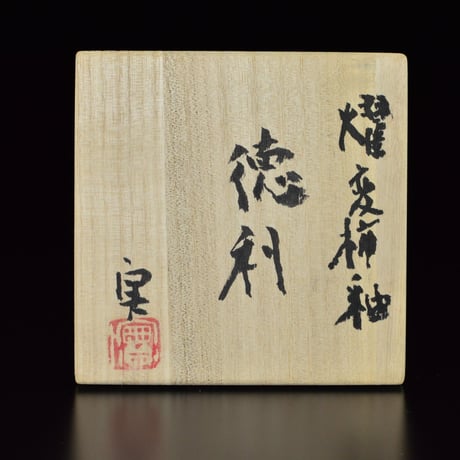 燿変柿釉
徳利
実